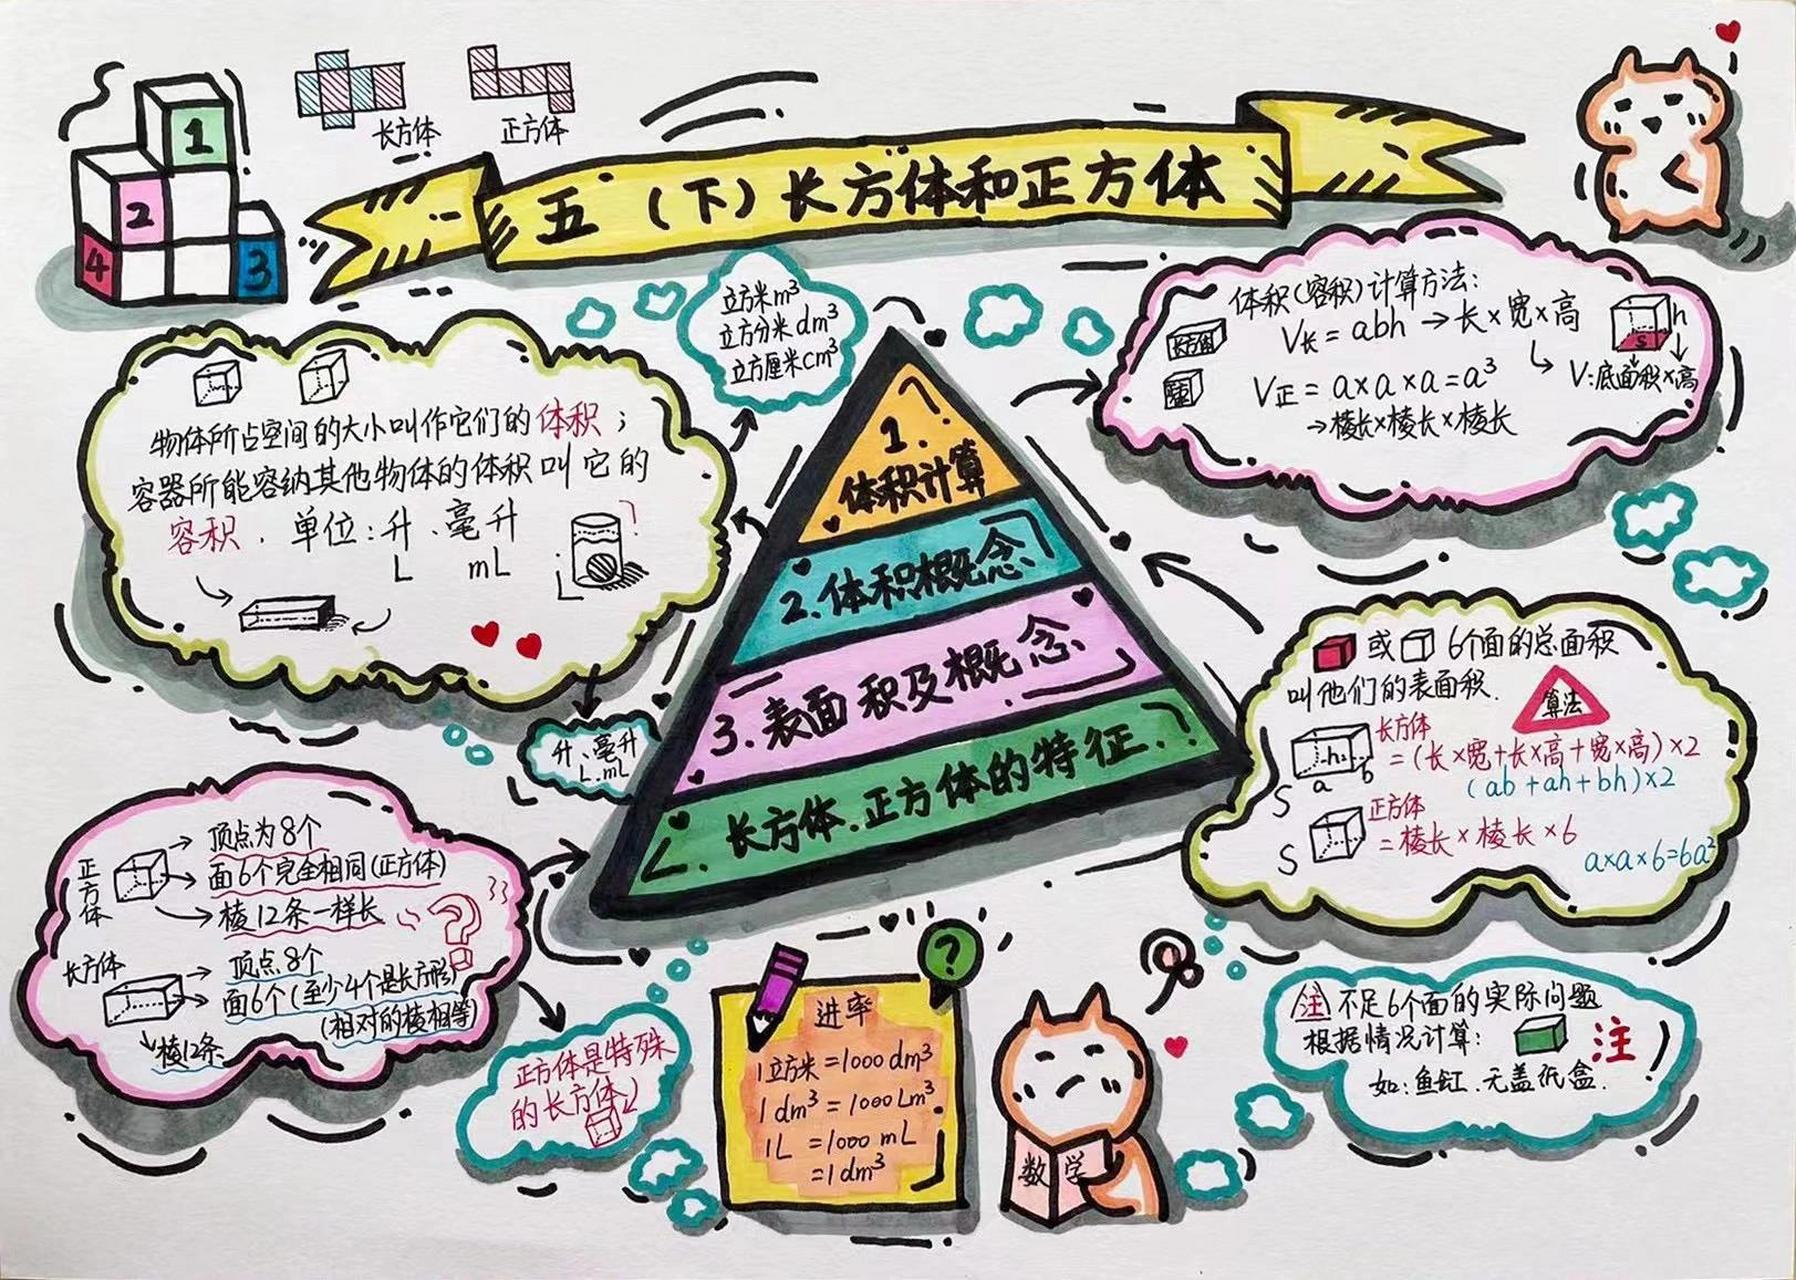 1
2
4
3
长方体
正方体
五（下）长方体和正方体
立方米m³
立方分米dm³
立方厘米cm³
体积(容积)计算方法:
V长=abh→长×宽×高
h
s
V:底面积×高
V正=a×a×a=a³
→棱长×棱长×棱长
物体所占空间的大小叫作它们的体积；
容器所能容纳其他物体的体积叫它的
容积．单位:升、毫升
L mL
升、毫升
L.mL
1.
体积计算
2.体积概念
3.表面积及概念
长方体.正方体的特征.
或 6个面的总面积
叫他们的表面积.
算法
长方体
=(长×宽+长×高+宽×高)×2
(ab+ah+bh)×2
h
a b
S
正方体
=棱长×棱长×6
S
a×a×6=6a²
正方体
顶点为8个
面6个完全相同(正方体)
棱12条一样长
长方体
顶点8个
面6个(至少4个是长方形)
(相对的棱相等)
棱12条
正方体是特殊
的长方体
?
进率
1立方米=1000dm³
1dm³=1000Lm³
1L=1000mL
=1dm³
数学
注 不足6个面的实际问题
根据情况计算:
注
如:鱼缸.无盖纸盒.